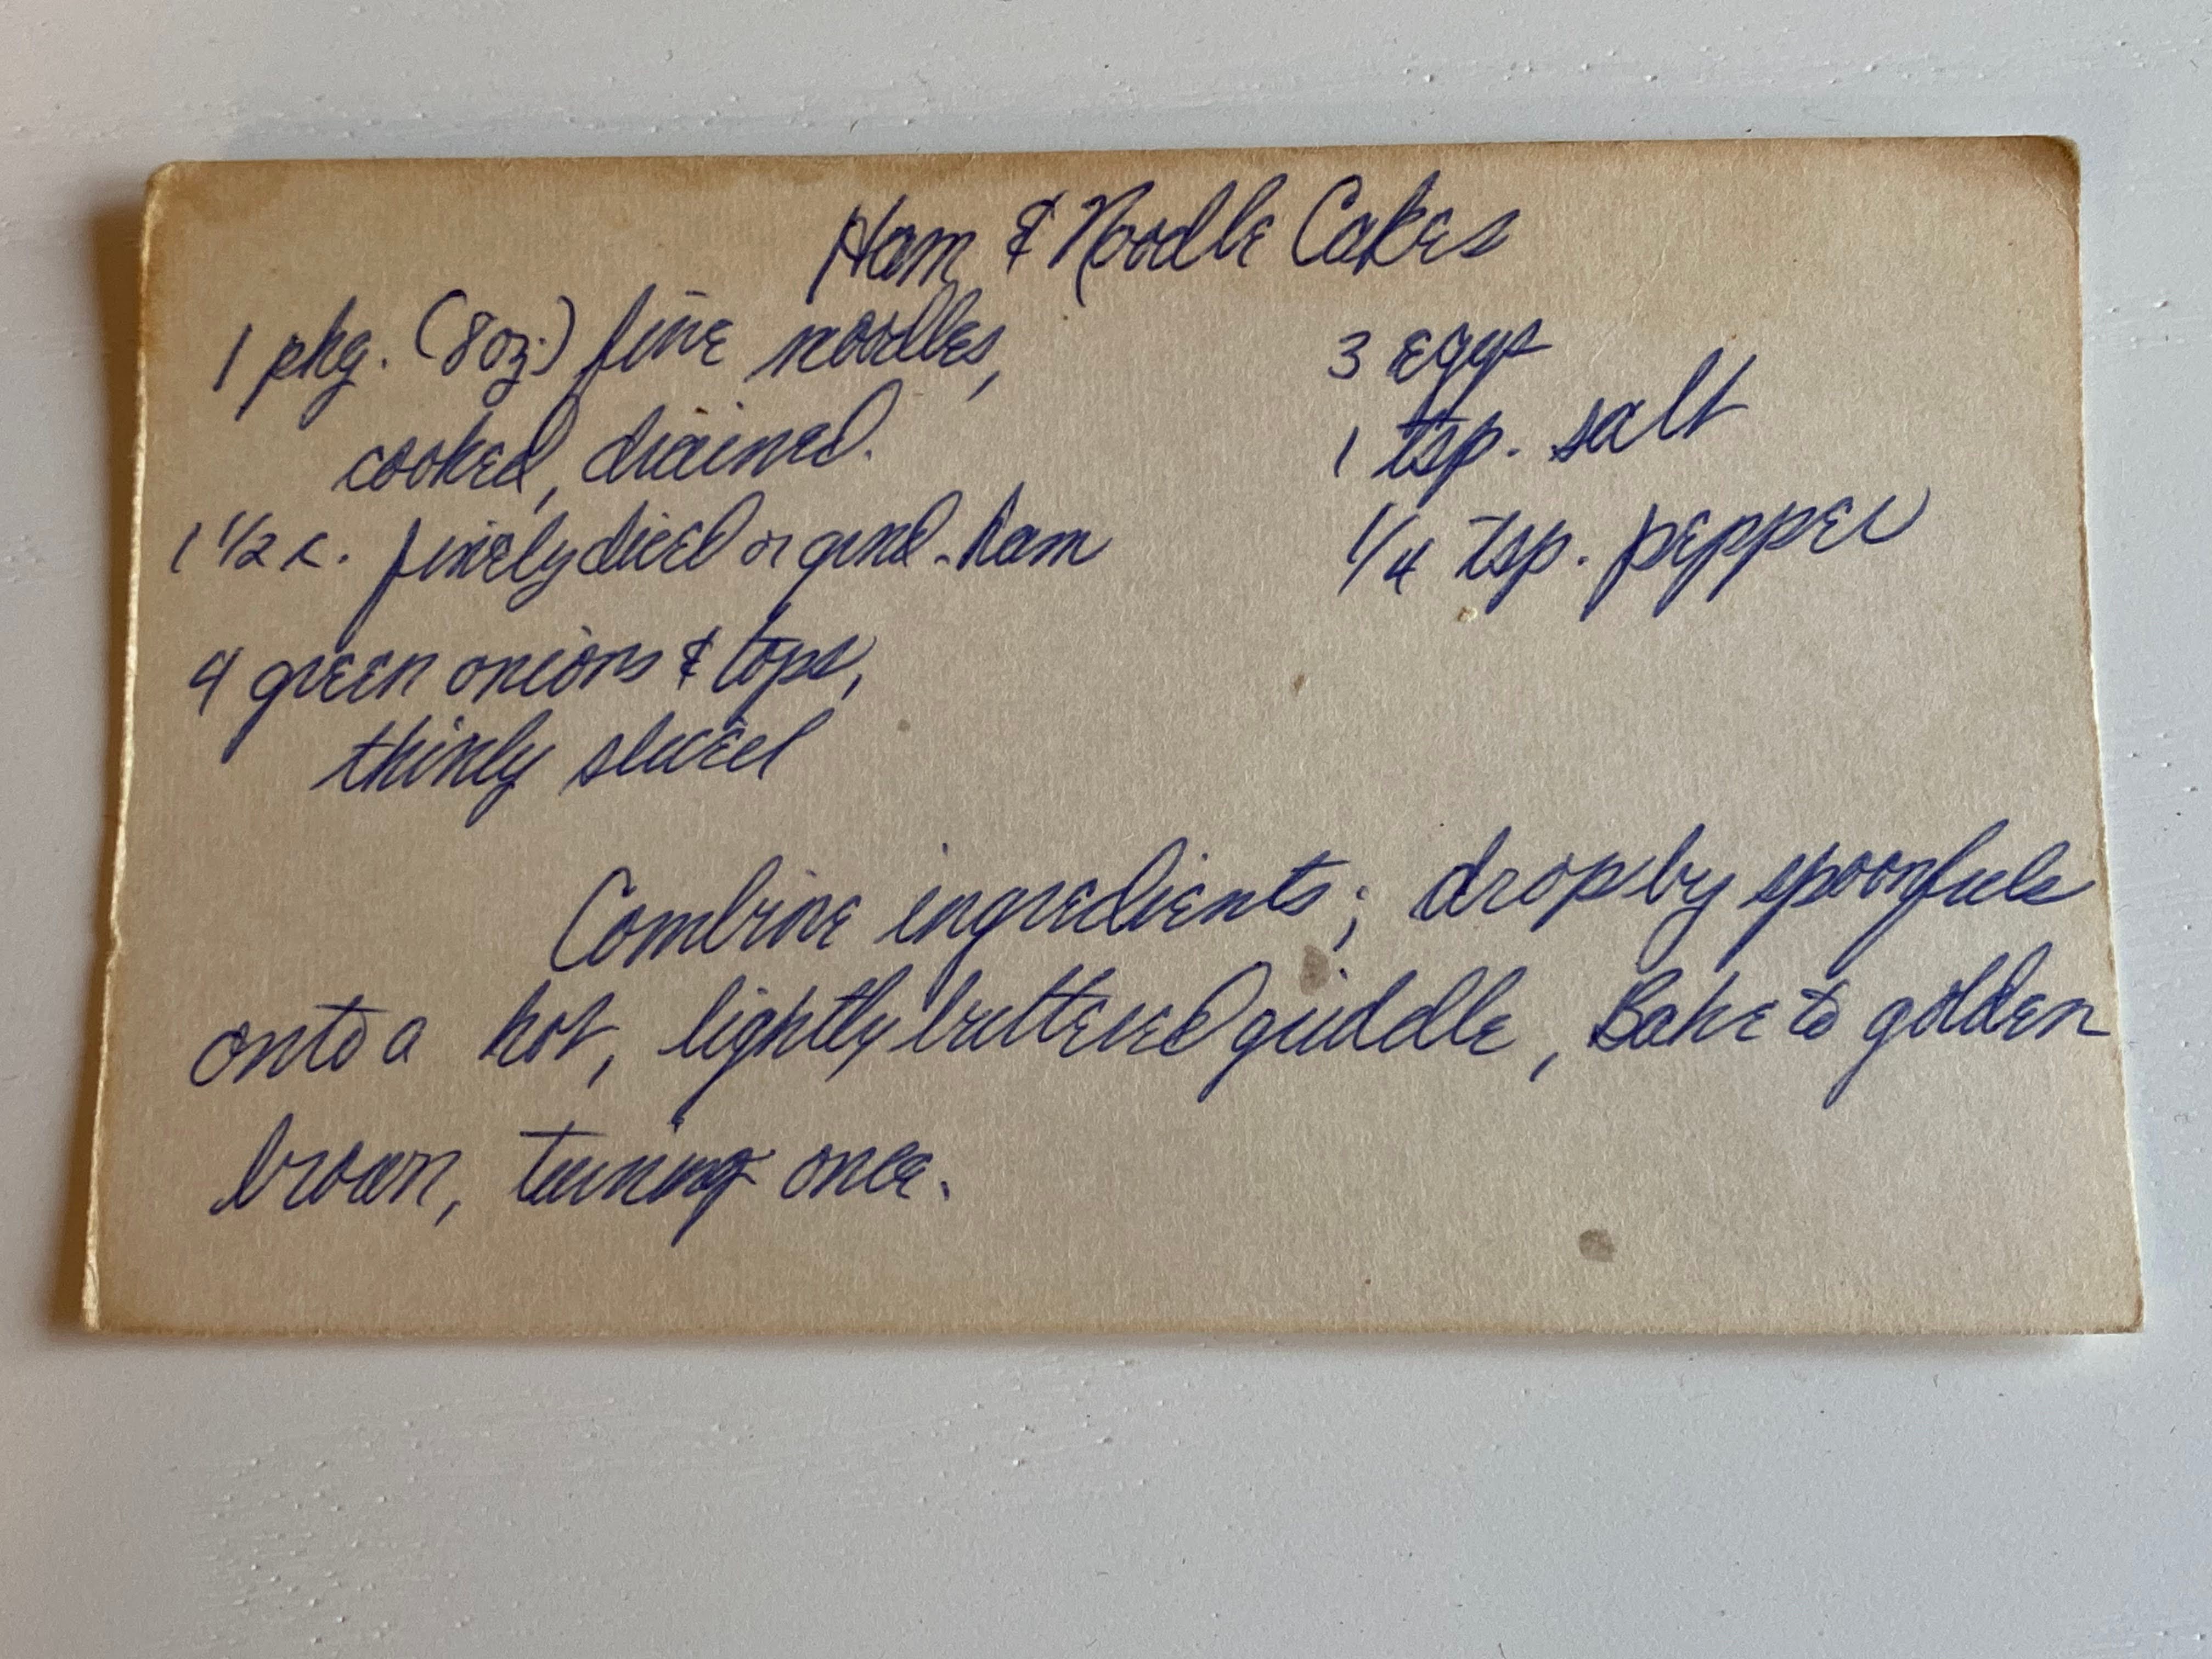 Ham & Noodle Cakes
1 pkg. (8oz.) fine noodles,
cooked, drained.
1 1/2 c. finely diced or grnd. ham
4 green onions & tops,
thinly sliced
3 eggs
1 tsp. salt
1/4 tsp. pepper
Combine ingredients; drop by spoonfuls
onto a hot, lightly buttered griddle, Bake to golden
brown, turning once.